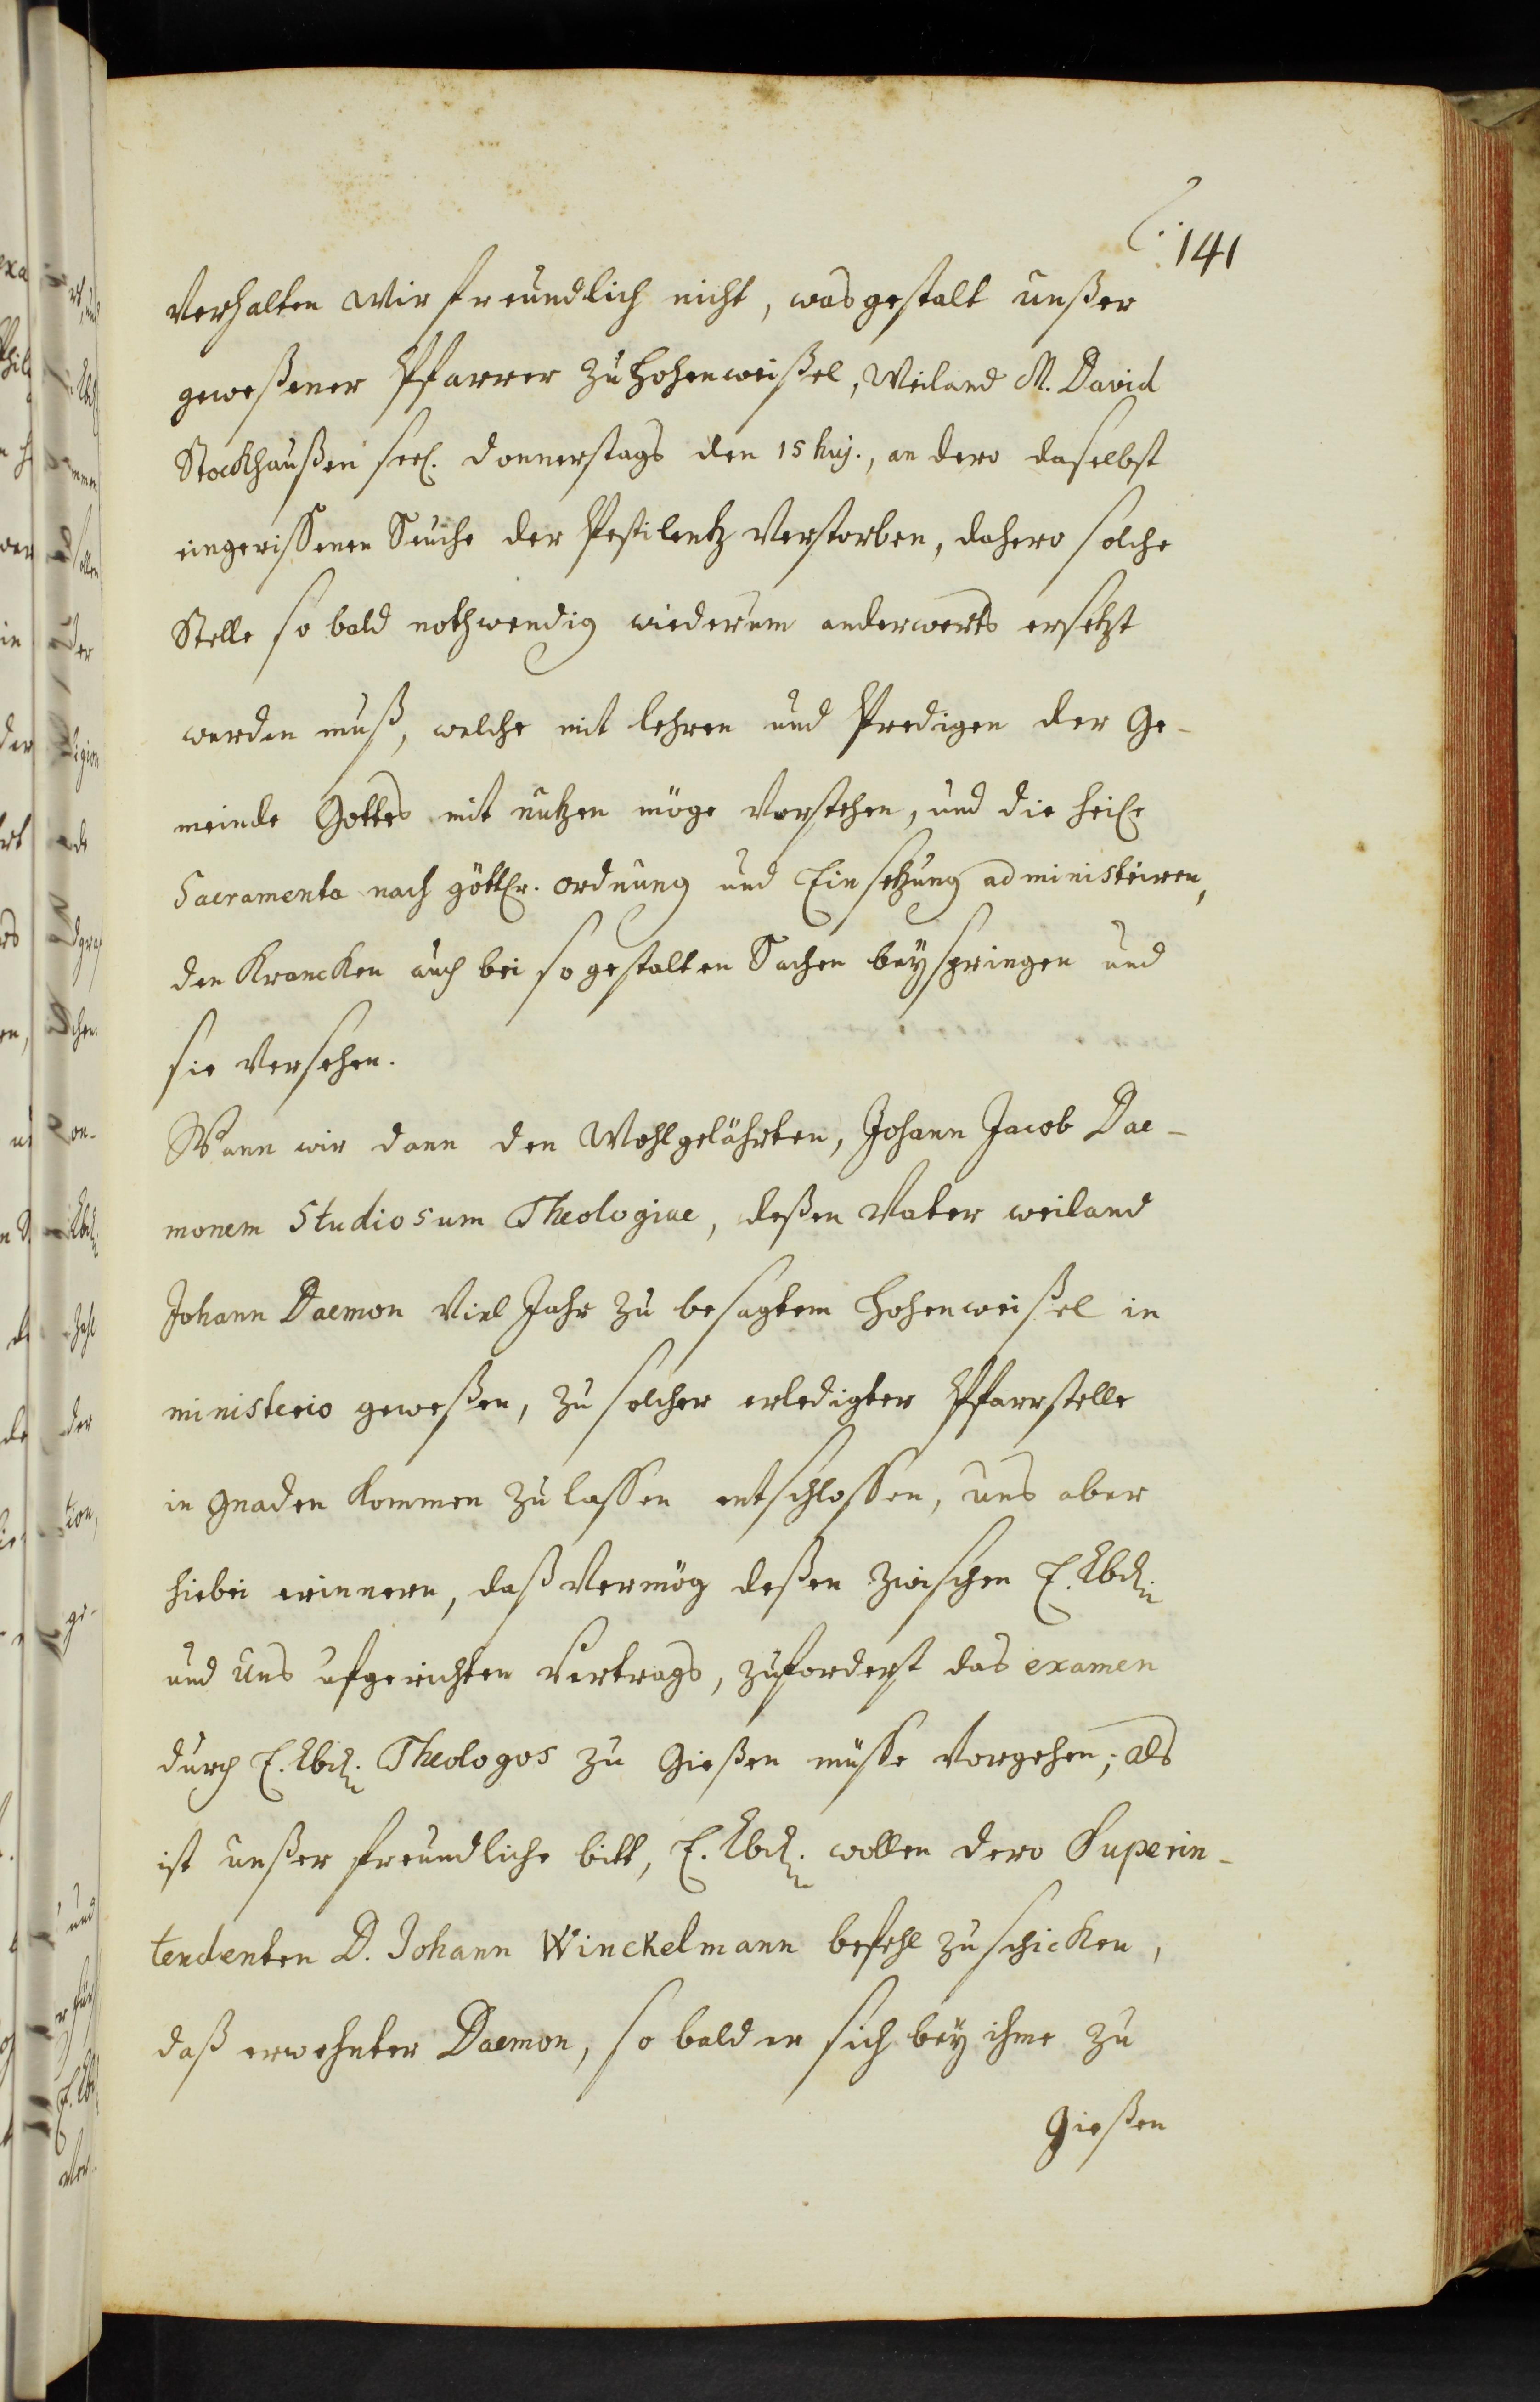 141
Verhalten wir freundlich nicht, was gestalt unßer
geweßener Pfarrer zu Hohenweißel, weiland M. David
Stockhaußen seel. Donnerstags den 15 huj., an dero daselbst
eingerissenen Seuche der Pestilentz verstorben, dahero solche
Stelle so bald nothwendig wiederum anderwerts ersetzt
werden muß, welche mit lehren und Predigen der Ge-
meinde Gottes mit nutzen möge vorstehen, und die heil.
Sacramenta nach göttlr. ordnung und Einsetzung administriren,
den Krancken auch bei so gestalten Sachen beyspringen und
sie versehen.
Wann wir dann den Wohlgelährten, Johann Jacob Dae-
monem Studiosum Theologiae, deßen Vater weiland
Johann Daemon viel Jahr zu besagtem Hohenweißel in
ministerio geweßen, zu solcher erledigter Pfarrstelle
in gnaden kommen zu lassen entschlossen, uns aber
hiebei erinnern, daß vermög deßen zwischen E. Lbd.
und uns ufgerichten Vertrags, zuforderst das examen
durch E. Lbd. Theologos zu Gießen müsse vorgehen; als
ist unßer freundliche bitt, E. Lbd. wollen dero Superin-
tendenten D. Johann Winckelmann befehl zuschicken,
daß erwehnter Daemon, so bald er sich bey ihme zu
Gießen